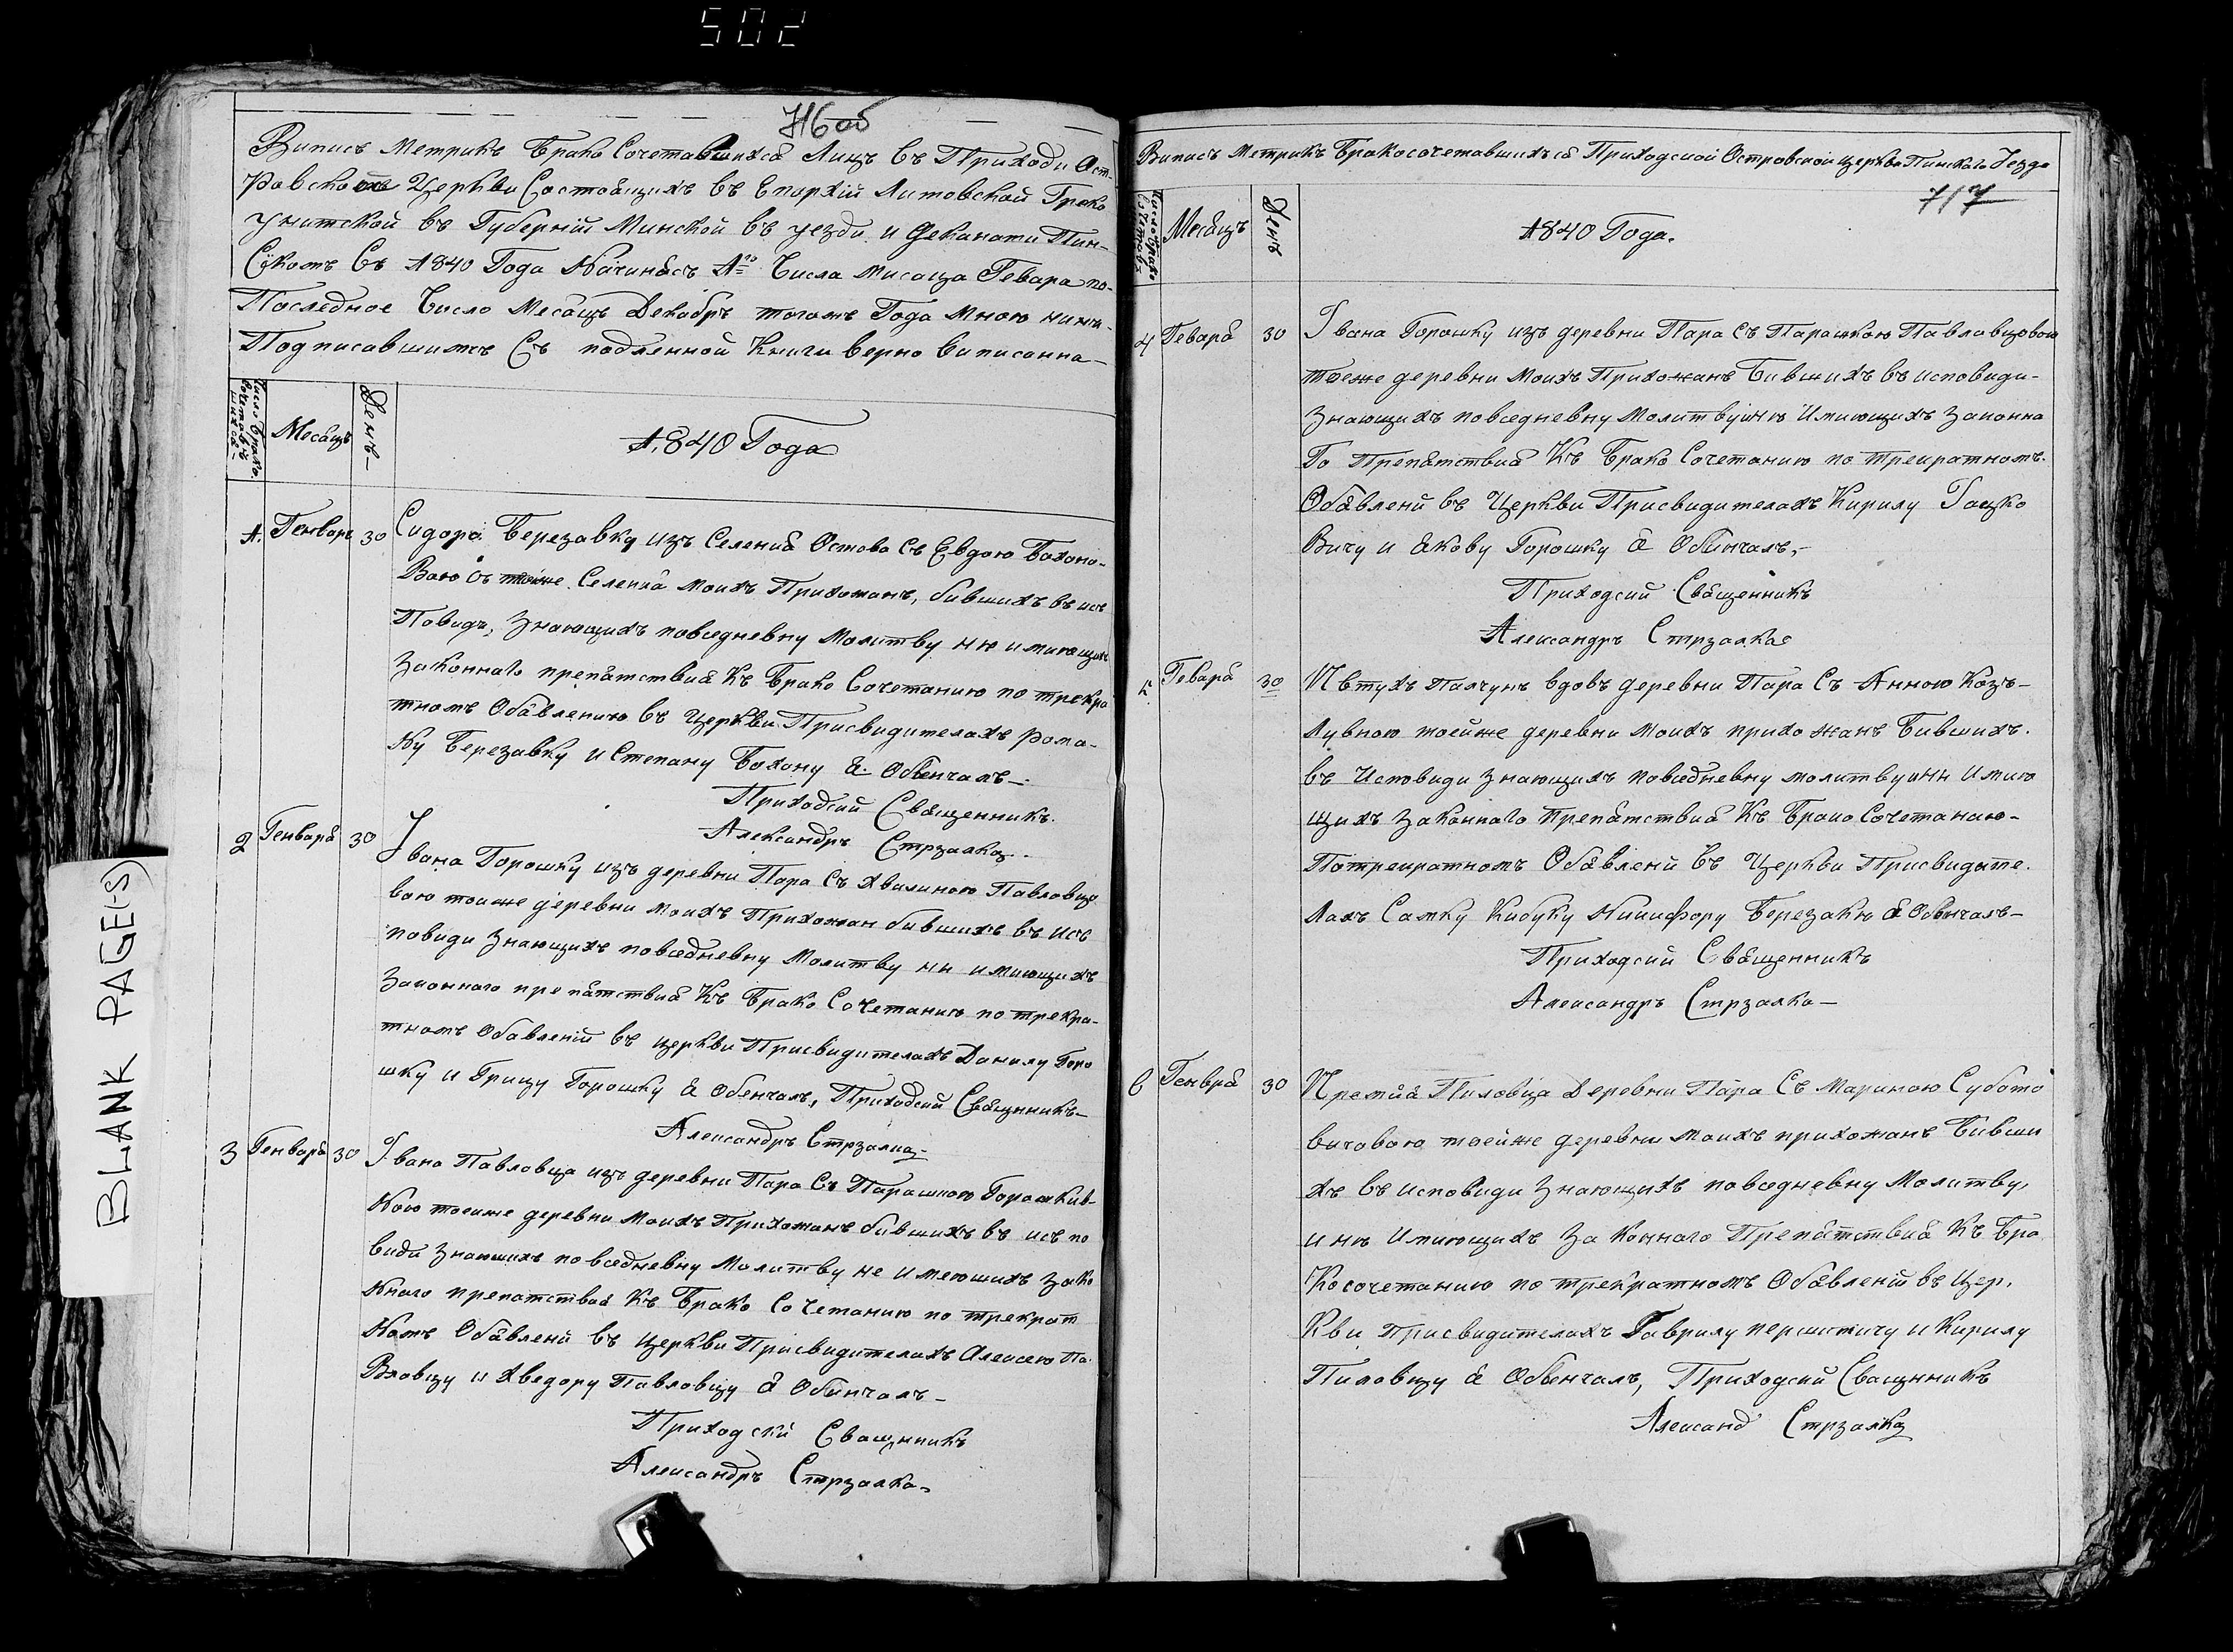 502
716об
Випись Метрикъ Брако Сочетавшихся Лицъ въ Приходи Ост-
ровской Церкви Состоящихъ въ Епархій Литовской Греко
Унитской въ Губерній Минской въ уезди и Деканати Пин-
скомъ Съ 1840 Года Начинаясъ 1го Числа мисаца Гевара по-
Последное Число Месацъ Декабръ тогожъ Года Мною ниже-
Подписавшимсь Съ подленной Книги верно виписанна-
Число Брако сочетавшихся
Месацъ
День
1840 Года
1. Генваръ 30 Сидора Березавку изъ Селения Остова Съ Евдою Бохоно-
Вою съ тойже Селения Моихъ Прихожанъ, бившихъ въ исъ
Повиди, Знающихъ повседневну Молитву ни имиющихъ
Законнаго препятствия Къ Брако Сочетанию по трекра
тномъ Обявлению въ Церкви Присвидителахъ рома-
ну Березавку и Степану Бохону я Обвенчалъ-
Приходсий Священникъ
Александръ Стрзалка
2 Генвара 30 Ивана Горошку изъ деревни Пара Съ Хвилиною Павловцо
вою тоиже деревни Моихъ Прихожан бившихъ въ Исъ
повиди Знающихъ повседневну Молитву ни имиющихъ
Законнаго препятствия Къ Брако Сочетанию по трекра-
тномъ Обавлений въ церкви Присвидителахъ Данилу Горо
шку и Грицу Горошку я Обенчалъ, Приходсий Священникъ-
Александръ Стрзалка
3 Генвара 30 Ивана Павловца изъ деревни Пара Съ Парашкою Горошкив-
Ною тоеиже деревни Моихъ Прихожанъ бившихъ въ исъ по
види Знающихъ повседневну Молитву не имеющихъ Зако
ннаго препатствия Къ Брако Сочетанию по трекрат
Номъ Обавлени въ церкви Присвидителахъ Алексею Па-
Вловцу и Хведору Павловцу я Обвинчалъ-
Приходский Сващенникъ
Александръ Стрзалка
Випись Метрикъ Бракосочетавшихъся Приходской Островской церкви Пинскаго Уезда
717
Месацъ
День
1840 Года.
4 Гевара 30 Ивана Горошку изъ деревни Пара съ Парашкою Павловцовою
тоеже деревни Моихъ Прихожанъ Бившихъ въ исповиди-
Знающихъ повседневну Молитву и ню Имиющихъ Законна
Го Препятствия Къ Брако Сочетанию по трекратномъ
Обавлени въ Церкви Присвидителахъ Кирилу Гацко
Вичу и Якову Горошку я Обвинчалъ,-
Приходсий Священникъ
Александръ Стрзалка
5 Гевара 30 Ивтухъ Палчунъ вдовъ деревни Пара Съ Анною Козъ-
Лувною тоейже деревни Моихъ прихожанъ Бившихъ
въ Исповиди Знающихъ повседневну молитву инн Имию
щихъ Законнаго Препятствия Къ Брако Сочетанию-
Потрекратномъ Обавлени въ Церкви Присвидите.
Лахъ Самку Кибуку Никифору Березаню я Обвенчалъ-
Приходсий Священникъ
Александръ Стрзалка-
6 Генвра 30 Иремия Пиловца Деревни Пара Съ Мариною Субото
вичовою тоейже деревни Моихъ прихожанъ Бивши
хъ въ исповиди Знающихъ повседневну Молитву,
и ню Имиющихъ Законнаго Препатствия Къ Бра
Косочетанию по трекратномъ Обавлений въ Цер.
Кви, Присвидителахъ Гаврилу першитичу и Кирилу
Пиловцу я Обвенчалъ, Приходсий Сващнникъ
Александ Стрзалка
BLANK PAGE(-S)